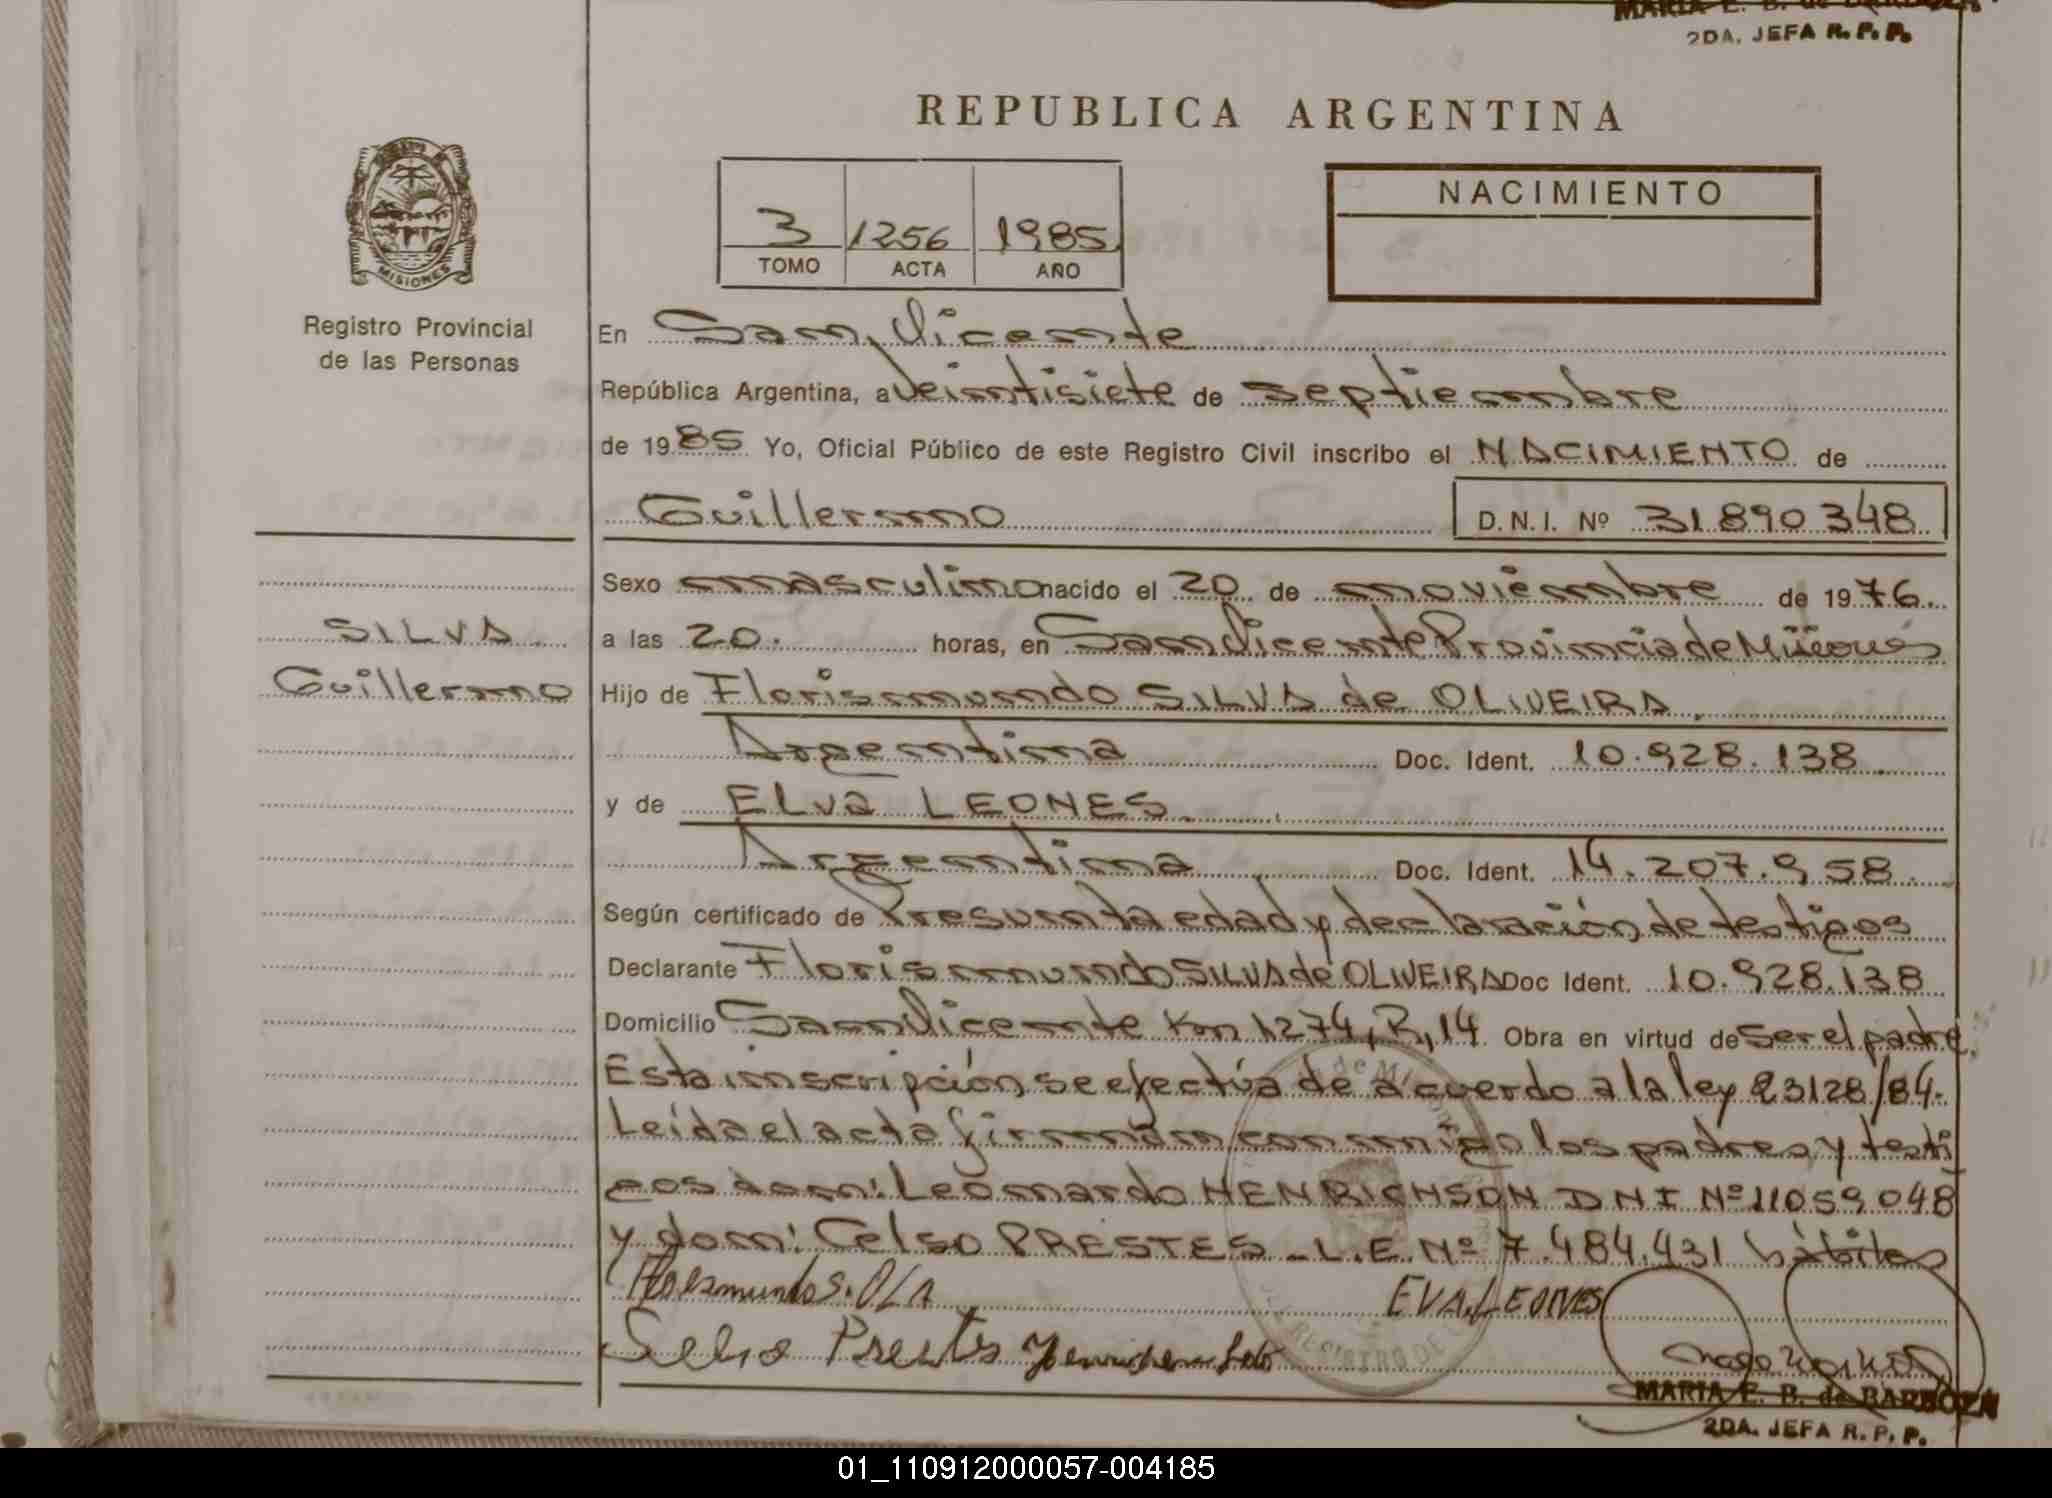 MARIA E. B. de BARBOZA
2DA. JEFA R. P. P.
REPUBLICA ARGENTINA
NACIMIENTO
3 1256 1985
TOMO ACTA AÑO
MISIONES
Registro Provincial
de las Personas
En San Vicente
República Argentina, a Veintisiete de septiembre
de 1985 Yo, Oficial Público de este Registro Civil inscribo el NACIMIENTO de
Guillermo D.N.I. Nº 31890348
Sexo masculino nacido el 20 de noviembre de 1976.
SILVA
a las 20. horas, en San Vicente Provincia de Misiones
Guillermo
Hijo de Florismundo SILVA de OLIVEIRA.
Argentina Doc. Ident. 10.928.138
y de ELVA LEONES.
Argentina Doc. Ident. 14.207.958.
Según certificado de Presunta edad y declaración de testigos
Declarante Florismundo SILVA de OLIVEIRA Doc Ident. 10.928.138
Domicilio San Vicente Km 1274, R, 14 Obra en virtud de Ser el padre.
Esta inscripción se efectúa de acuerdo a la ley 23128/84.
Leída el acta firman conmigo los padres y testi
gos don: Leonardo HENRICHSON DNI Nº 11059048
y don: Celso PRESTES - L.E. Nº 7.484.431 hábiles
EVA LEONES
MARIA E. B. de BARBOZA
2DA. JEFA R. P. P.
01_110912000057-004185